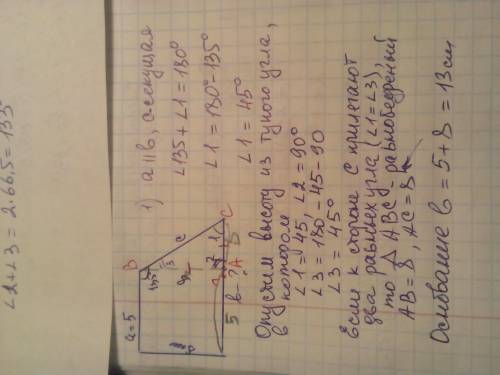 ∠2+∠3 = 2·66,5 = 133°
1) a ∥ b, c секущая
∠135 + ∠1 = 180°
∠1 = 180° - 135°
∠1 = 45°
a = 5
B
135°
3
c
2
1
C
A
5
b - ?
Опустим высоту из тупого угла,
в котором
∠1 = 45, ∠2 = 90°
∠3 = 180 - 45 - 90
∠3 = 45°
Если к стороне C прилегают
два равных угла (∠1 = ∠3),
то △ ABC - равнобедренный
AB = 8, AC = 8
Основание b = 5 + 8 = 13 см